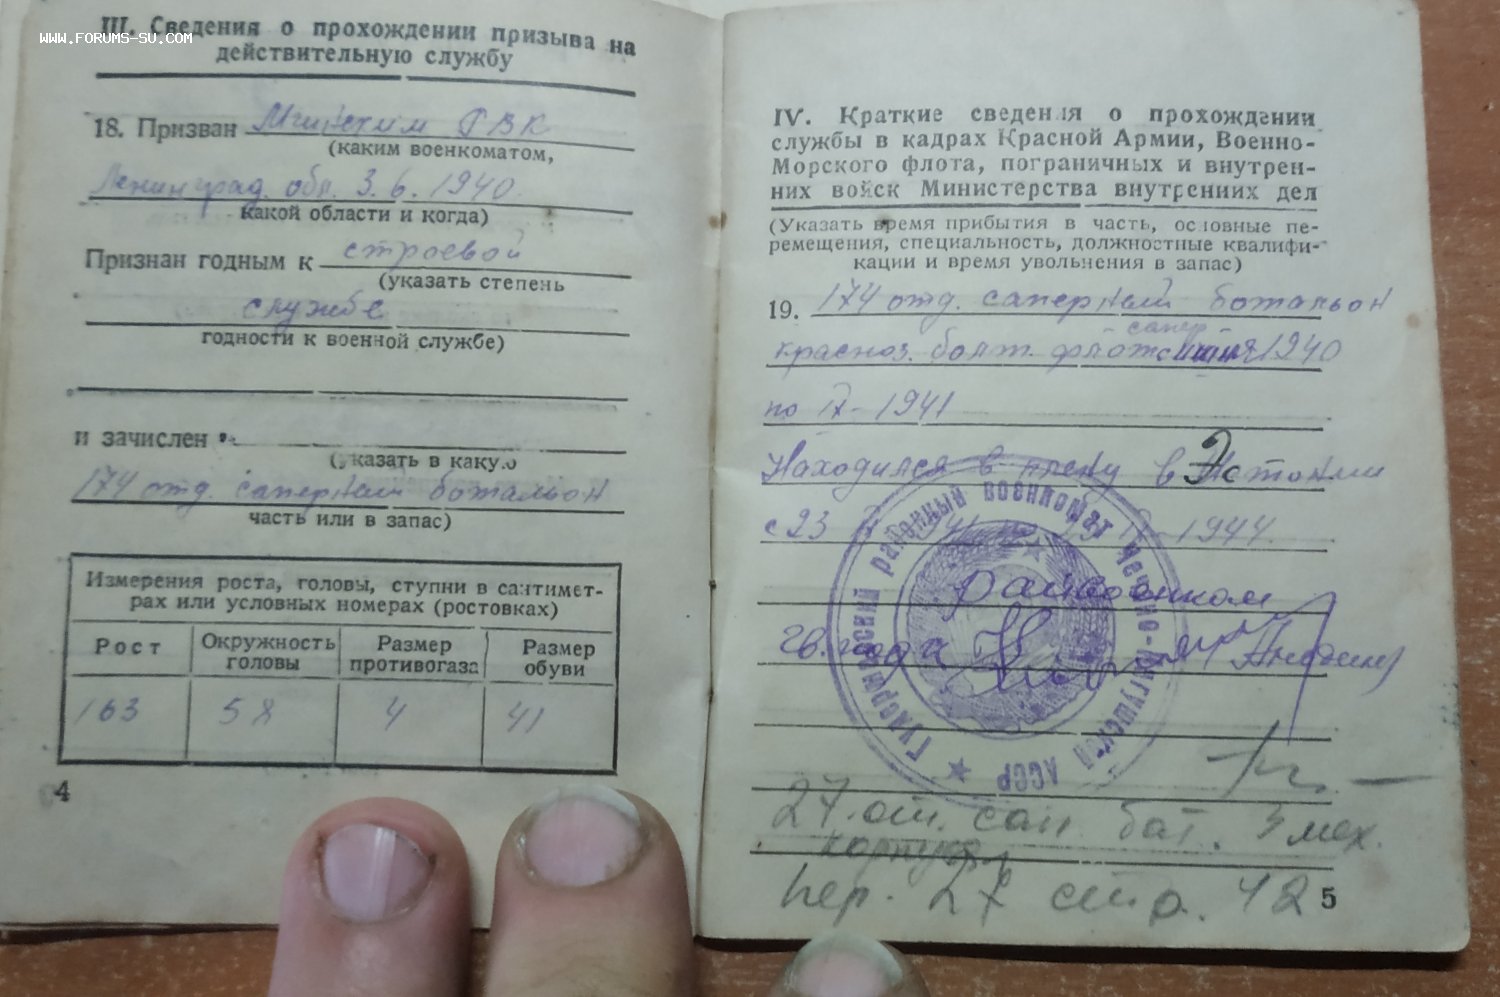 www.forums-su.com
III. Сведения о прохождении призыва на
действительную службу
18. Призван Мгинским РВК
(каким военкоматом,
Ленинград. обл. 3.6.1940.
какой области и когда)
Признан годным к строевой
(указать степень
службе
годности к военной службе)
и зачислен
(указать в какую
174 отд. саперный ботальон
часть или в запас)
Измерения роста, головы, ступни в сантимет-
рах или условных номерах (ростовках)
Рост Окружность головы Размер противогаза Размер обуви
163 58 4 41
4
IV. Краткие сведения о прохождении
службы в кадрах Красной Армии, Военно-
Морского флота, пограничных и внутрен-
них войск Министерства внутренних дел
(Указать время прибытия в часть, основные пе-
ремещения, специальность, должностные квалифи-
кации и время увольнения в запас)
19. 174 отд. саперный ботальон
сапер
1940
по - 1941
Находился в плену в Эстонии
с 23 - 1944.
Райвоенком
гв.
Гудермесский районный военкомат Чечено-Ингушской АССР
27. от. сап. бат. 3 мех.
корпуса
пер. 27 стр. 42
5